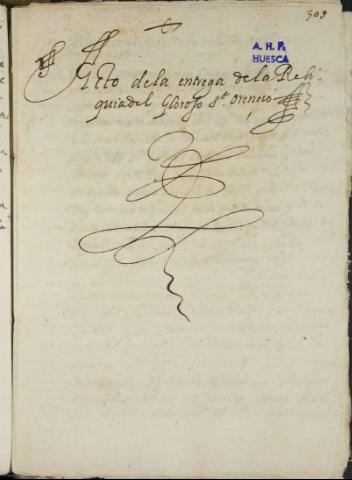 309
A. H. P.
HUESCA
Acto de la entrega de la Reli-
quia del Glorioso Sto. Orencio